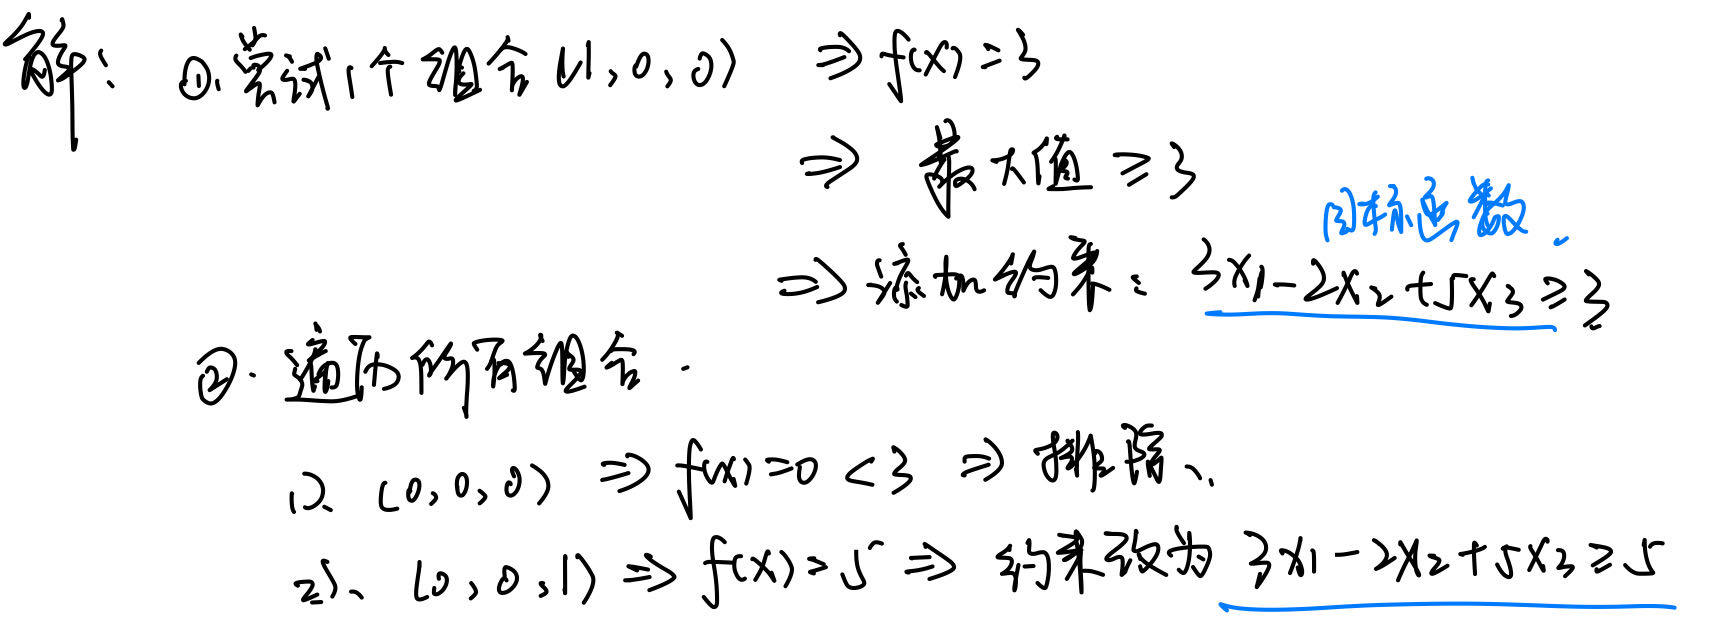 解: ①. 尝试1个组合 (1, 0, 0) ⇒ f(x) = 3
⇒ 最大值 ≥ 3
目标函数.
⇒ 添加约束: 3x₁ - 2x₂ + 5x₃ ≥ 3
②. 遍历所有组合.
1). (0, 0, 0) ⇒ f(x) = 0 < 3 ⇒ 排除、
2)、(0, 0, 1) ⇒ f(x) = 5 ⇒ 约束改为 3x₁ - 2x₂ + 5x₃ ≥ 5